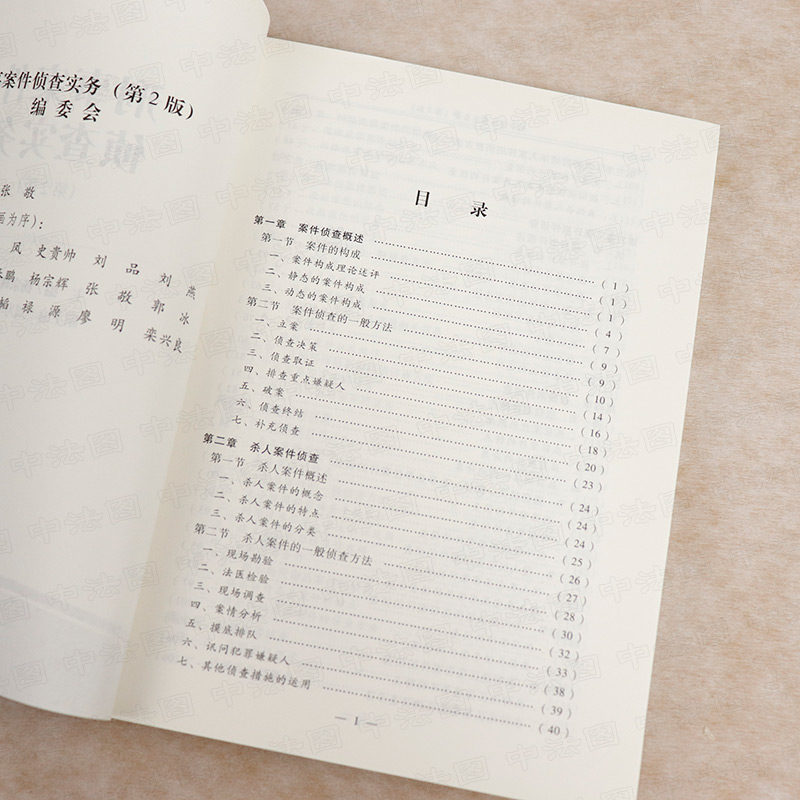 案件侦查实务（第2版）
编委会
张 敬
画为序）：
凤 史贵帅 刘 品 刘 燕
鹏 杨宗辉 张 敬 郭 冰
韬 禄 源 廖 明 栾兴良
目 录
第一章 案件侦查概述 ……（1）
第一节 案件的构成 ……（1）
一、案件构成理论述评 ……（1）
二、静态的案件构成 ……（4）
三、动态的案件构成 ……（7）
第二节 案件侦查的一般方法 ……（9）
一、立案 ……（9）
二、侦查决策 ……（10）
三、侦查取证 ……（14）
四、排查重点嫌疑人 ……（16）
五、破案 ……（18）
六、侦查终结 ……（20）
七、补充侦查 ……（23）
第二章 杀人案件侦查 ……（24）
第一节 杀人案件概述 ……（24）
一、杀人案件的概念 ……（24）
二、杀人案件的特点 ……（25）
三、杀人案件的分类 ……（26）
第二节 杀人案件的一般侦查方法 ……（27）
一、现场勘验 ……（28）
二、法医检验 ……（30）
三、现场调查 ……（32）
四、案情分析 ……（33）
五、摸底排队 ……（38）
六、讯问犯罪嫌疑人 ……（39）
七、其他侦查措施的运用 ……（40）
— 1 —
中法图